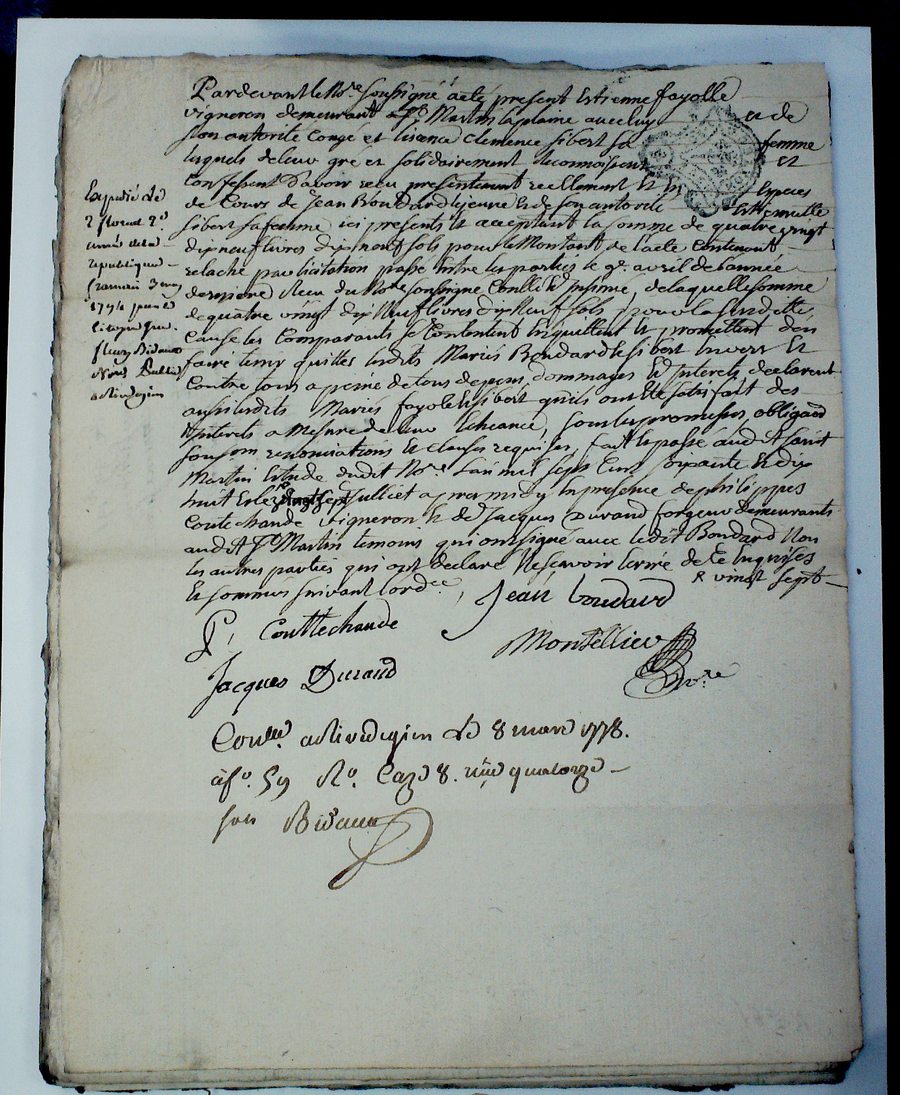 Pardevant le No.re soussigné a été présent Estienne fayolle
vigneron demeurant a St Martin la plaine avec luy et de
son autorité Congé et lisence Clemence Sibert sa femme
lesquels de leur gré et solidairement reconnoissent et
Confessent d'avoir reçu presentement reellement et en Especes
de Cours de Jean Bondard le jeune et de son autorité Estiennette
Sibert sa femme ici presents et acceptant la somme de quatre vingt
dix neuf livres dix neuf sols pour le Montant de l'acte Contenant
relaché par licitation passé entre les parties le 9e avril de l'année
derniere Reçu du No.re soussigné Conllé et Insinué, de laquelle somme
de quatre vingt dix Neuf livres dix Neuf sols pour la susditte
Cause les Comparants se Contentent en quittent et promettent d'en
faire tenir quittes lesdits Mariés Bondard et Sibert Envers et
Contre tous a peine de tous depens, dommages et Interets declarent
aussi lesdits Mariés fayolle et Sibert qu'ils ont été satisfait des
Interets a Mesure de leur Echeance, sous les promesses, obligaons
soumons renonciations et clauses requises, fait et passé audit saint
Martin Etude dudit No.re l'an mil sept Cent soixante et dix
huit et le juillet apres midy En presence de philippes
Coutechaude vigneron et de Jacques Durand forgeur demeurants
audit St Martin temoins qui ont signé avec ledit Bondard Non
les autres parties qui ont declaré Ne scavoir Ecrire de Ce Enquises
Et sommés suivant l'ordce. R vingt sept
Jean boudard
P, Couttechaude
Montellier
No.re
Jacques Durand
Conllé. a Rivedegier le 8 1778.
a fo. 59 Ro. Caze 8. quatorze
sols Bidaud
Expedié le
2 floreal 2e
année de la
republique
francaise
1794 par le
Citoyen
fleury Bidaud
No.re Public
a Rivedegier